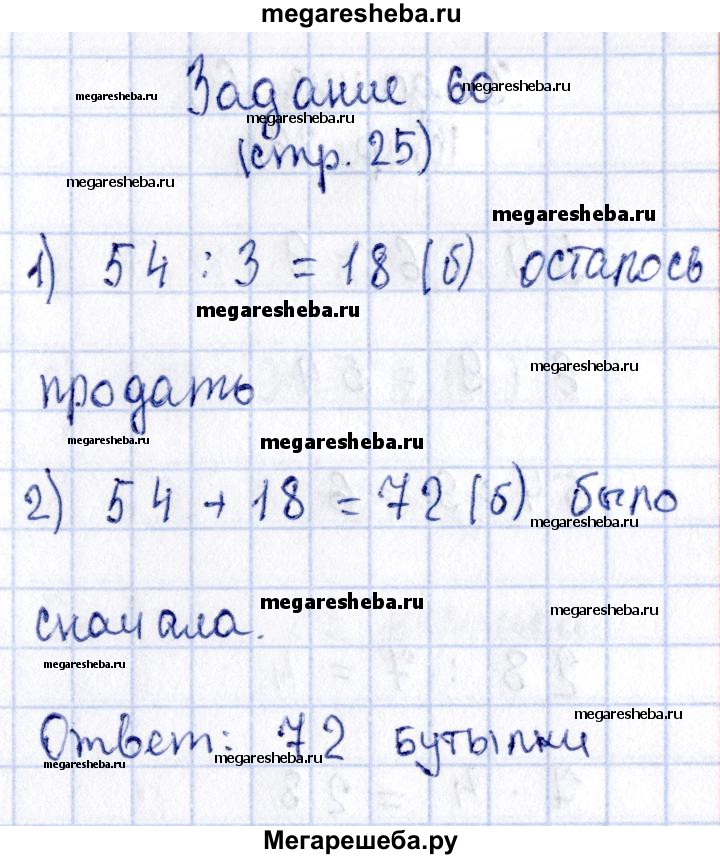 megaresheba.ru
Задание 60
megaresheba.ru
megaresheba.ru
megaresheba.ru
(стр. 25)
megaresheba.ru
megaresheba.ru
1) 54 : 3 = 18 (б) осталось
megaresheba.ru
megaresheba.ru
продать
megaresheba.ru
megaresheba.ru
2) 54 + 18 = 72 (б) было
megaresheba.ru
megaresheba.ru
megaresheba.ru
сначала.
megaresheba.ru
megaresheba.ru
Ответ: 72 бутылки
megaresheba.ru
megaresheba.ru
Мегарешеба.ру